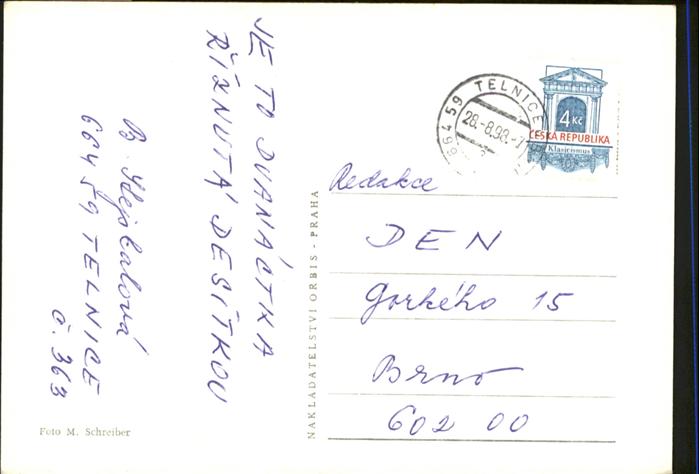 JE TO DVANÁCTKA
ŘÍZNUTÁ DESÍTKOU
664 59 TELNICE
č. 363
Foto M. Schreiber
NAKLADATELSTVÍ ORBIS - PRAHA
664 59 TELNICE
28.-8.98.-7
4 Kč
ČESKÁ REPUBLIKA
Klasicismus
Redakce
DEN
Gorkého 15
Brno
602 00